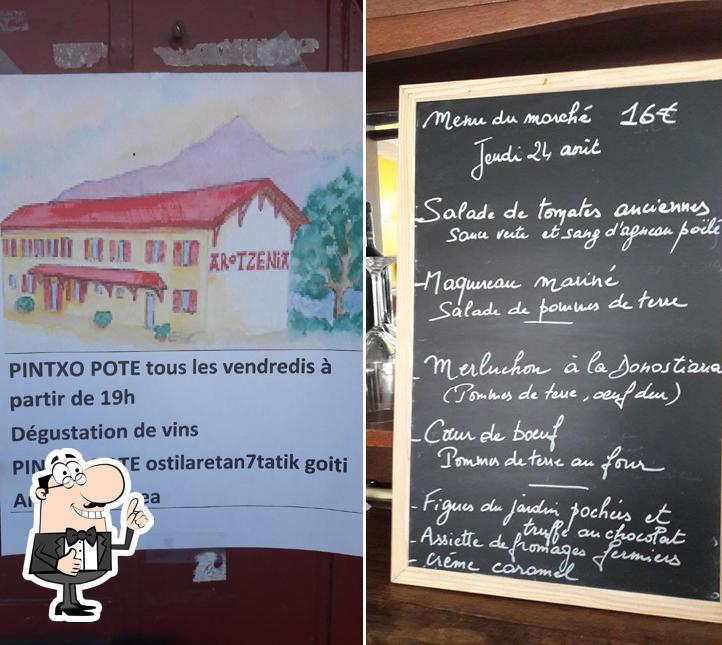 AROTZENIA
PINTXO POTE tous les vendredis à
partir de 19h
Dégustation de vins
ostilaretan7tatik goiti
Menu du marché 16€
Jeudi 24 août
-Salade de tomates anciennes
Sauce verte et sang d'agneau poêlé
-Maquereau mariné
Salade de pommes de terre
- Merluchon à la Donostiarra
(Pommes de terre, oeuf dur)
- Cœur de boeuf
Pommes de terre au four
- Figues du jardin pochées et
truffe au chocolat
- Assiette de fromages fermiers
- crème caramel